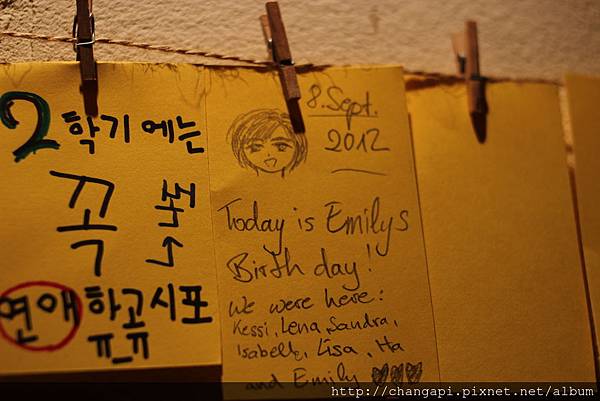 2학기에는
꼭 꼭
연애 하고시포
ㅠ_ㅠ
8. Sept.
2012
Today is Emilys
Birthday!
We were here:
Kessi, Lena, Sandra,
Isabelle, Lisa, Ha
and Emily ♥♥♥
http://changapi.pixnet.net/album